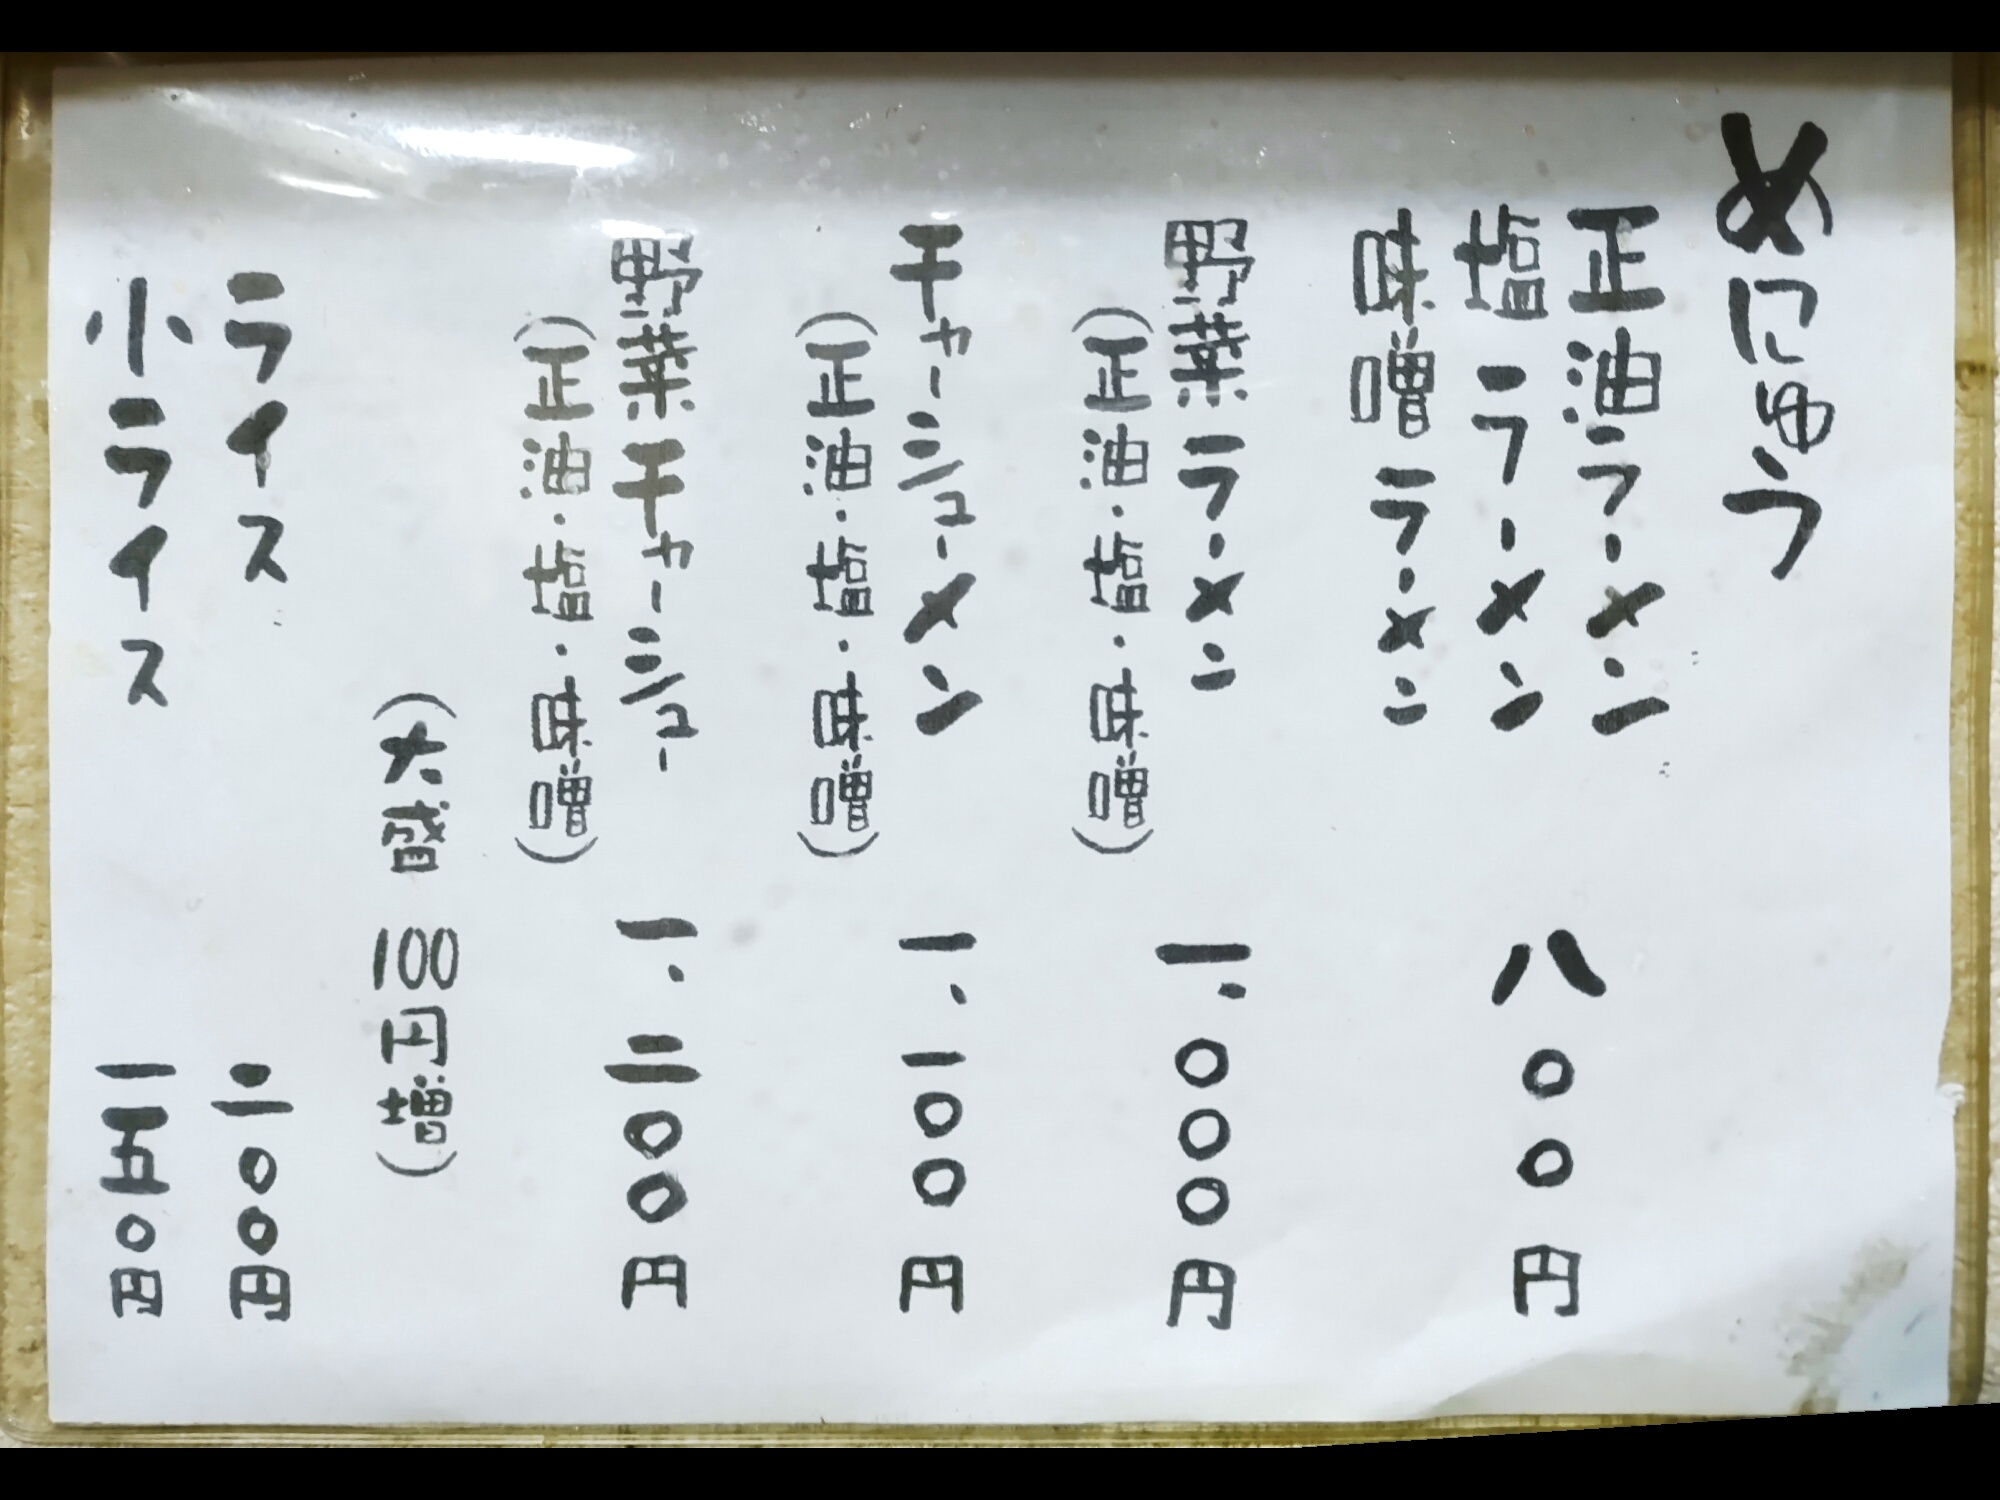 めにゅう
正油ラーメン
塩ラーメン
味噌ラーメン
八〇〇円
野菜ラーメン
(正油・塩・味噌)
一、〇〇〇円
チャーシューメン
(正油・塩・味噌)
一、一〇〇円
野菜チャーシュー
(正油・塩・味噌)
一、二〇〇円
(大盛 100円増)
ライス 二〇〇円
小ライス 一五〇円